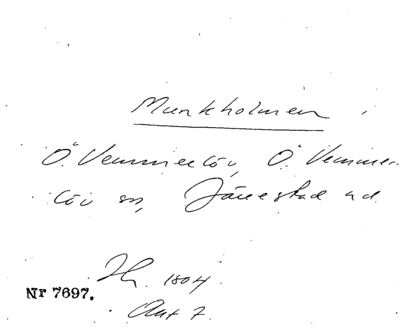 Munkholmen
Ö. Vemmerlöv, Ö. Vemmer-
löv sn, Järrestad hd.
1804
Nr 7697.
Akt 7.